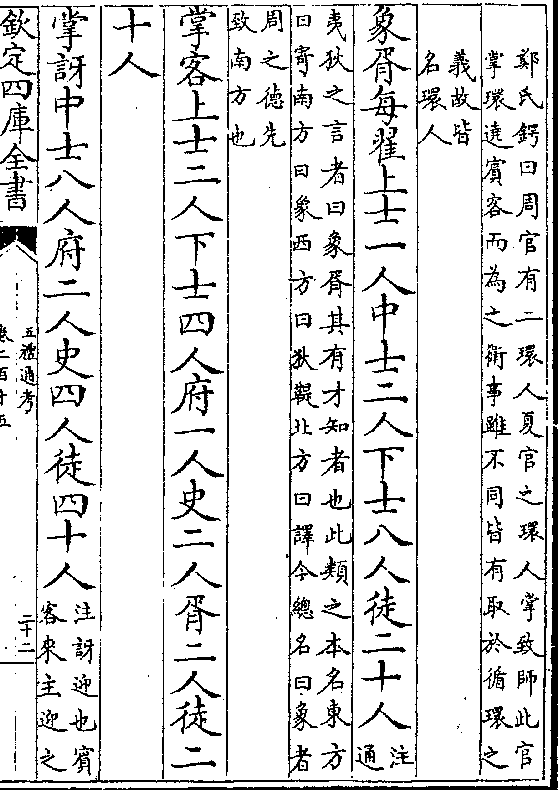 鄭氏鍔曰周官有二環人夏官之環人掌致師此官
掌環遶賓客而為之衛事雖不同皆有取於循環之
義故皆
名環人
象胥每翟上士一人中士二人下士八人徒二十人
注
通
夷狄之言者曰象胥其有才知者也此類之本名東方
曰寄南方曰象西方曰狄鞮北方曰譯今總名曰象者
周之德先
致南方也
掌客上士二人下士四人府一人史二人胥二人徒二
十人
掌訝中士八人府二人史四人徒四十人
注訝迎也賓
客來主迎之
欽定四庫全書
五禮通考
卷二百廿五
二十二